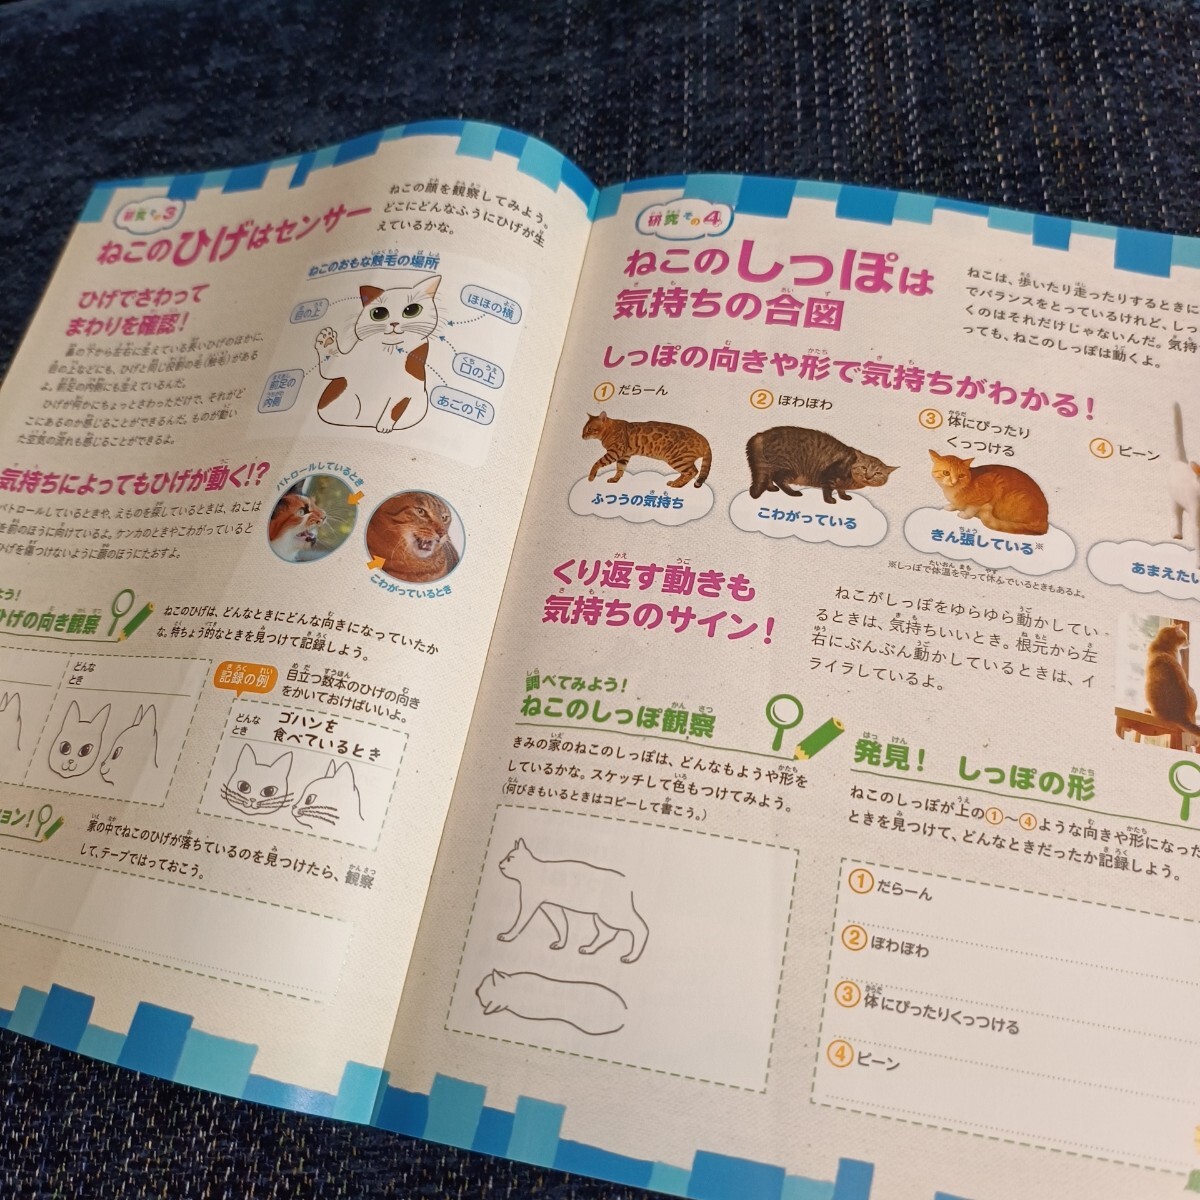 研究その3
ねこのひげはセンサー
ねこの顔を観察してみよう。
どこにどんなふうにひげが生
えているかな。
ひげでさわって
まわりを確認!
鼻の下から左右に生えている長いひげのほかに、
目の上などにも、ひげと同じ役割の毛(触毛)がある
よ。前足の内側にも生えているんだ。
ひげが何かにちょっとさわっただけで、それがど
こにあるのか感じることができるんだ。ものが動い
た空気の流れも感じることができるよ。
ねこのおもな触毛の場所
目の上
ほほの横
口の上
前足の
内側
あごの下
気持ちによってもひげが動く!?
パトロールしているときや、えものを探しているときは、ねこは
を前のほうに向けているよ。ケンカのときやこわがっていると
ひげを傷つけないように顔のほうにたおすよ。
パトロールしているとき
こわがっているとき
よう!
ひげの向き観察
ねこのひげは、どんなときにどんな向きになっていたか
な。特ちょう的なときを見つけて記録しよう。
どんな
とき
記録の例
目立つ数本のひげの向き
をかいておけばいいよ。
どんな
とき
ゴハンを
食べているとき
ョン!
家の中でねこのひげが落ちているのを見つけたら、観察
して、テープではっておこう。
研究その4
ねこのしっぽは
気持ちの合図
ねこは、歩いたり走ったりするときに
でバランスをとっているけれど、しっ
くのはそれだけじゃないんだ。気持
っても、ねこのしっぽは動くよ。
しっぽの向きや形で気持ちがわかる!
①だらーん
②ぼわぼわ
③体にぴったり
くっつける
④ピーン
ふつうの気持ち
こわがっている
きん張している※
あまえたい
※しっぽで体温を守って休んでいるときもあるよ。
くり返す動きも
気持ちのサイン!
ねこがしっぽをゆらゆら動かしてい
るときは、気持ちいいとき。根元から左
右にぶんぶん動かしているときは、イ
ライラしているよ。
調べてみよう!
ねこのしっぽ観察
きみの家のねこのしっぽは、どんなもようや形を
しているかな。スケッチして色もつけてみよう。
(何びきもいるときはコピーして書こう。)
発見! しっぽの形
ねこのしっぽが上の①〜④ような向きや形になった
ときを見つけて、どんなときだったか記録しよう。
①だらーん
②ぼわぼわ
③体にぴったりくっつける
④ピーン